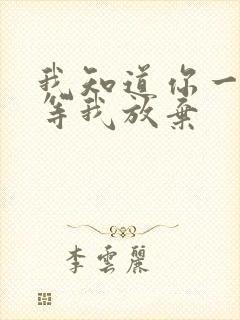 我知道你一
等我放弃
李雲麗